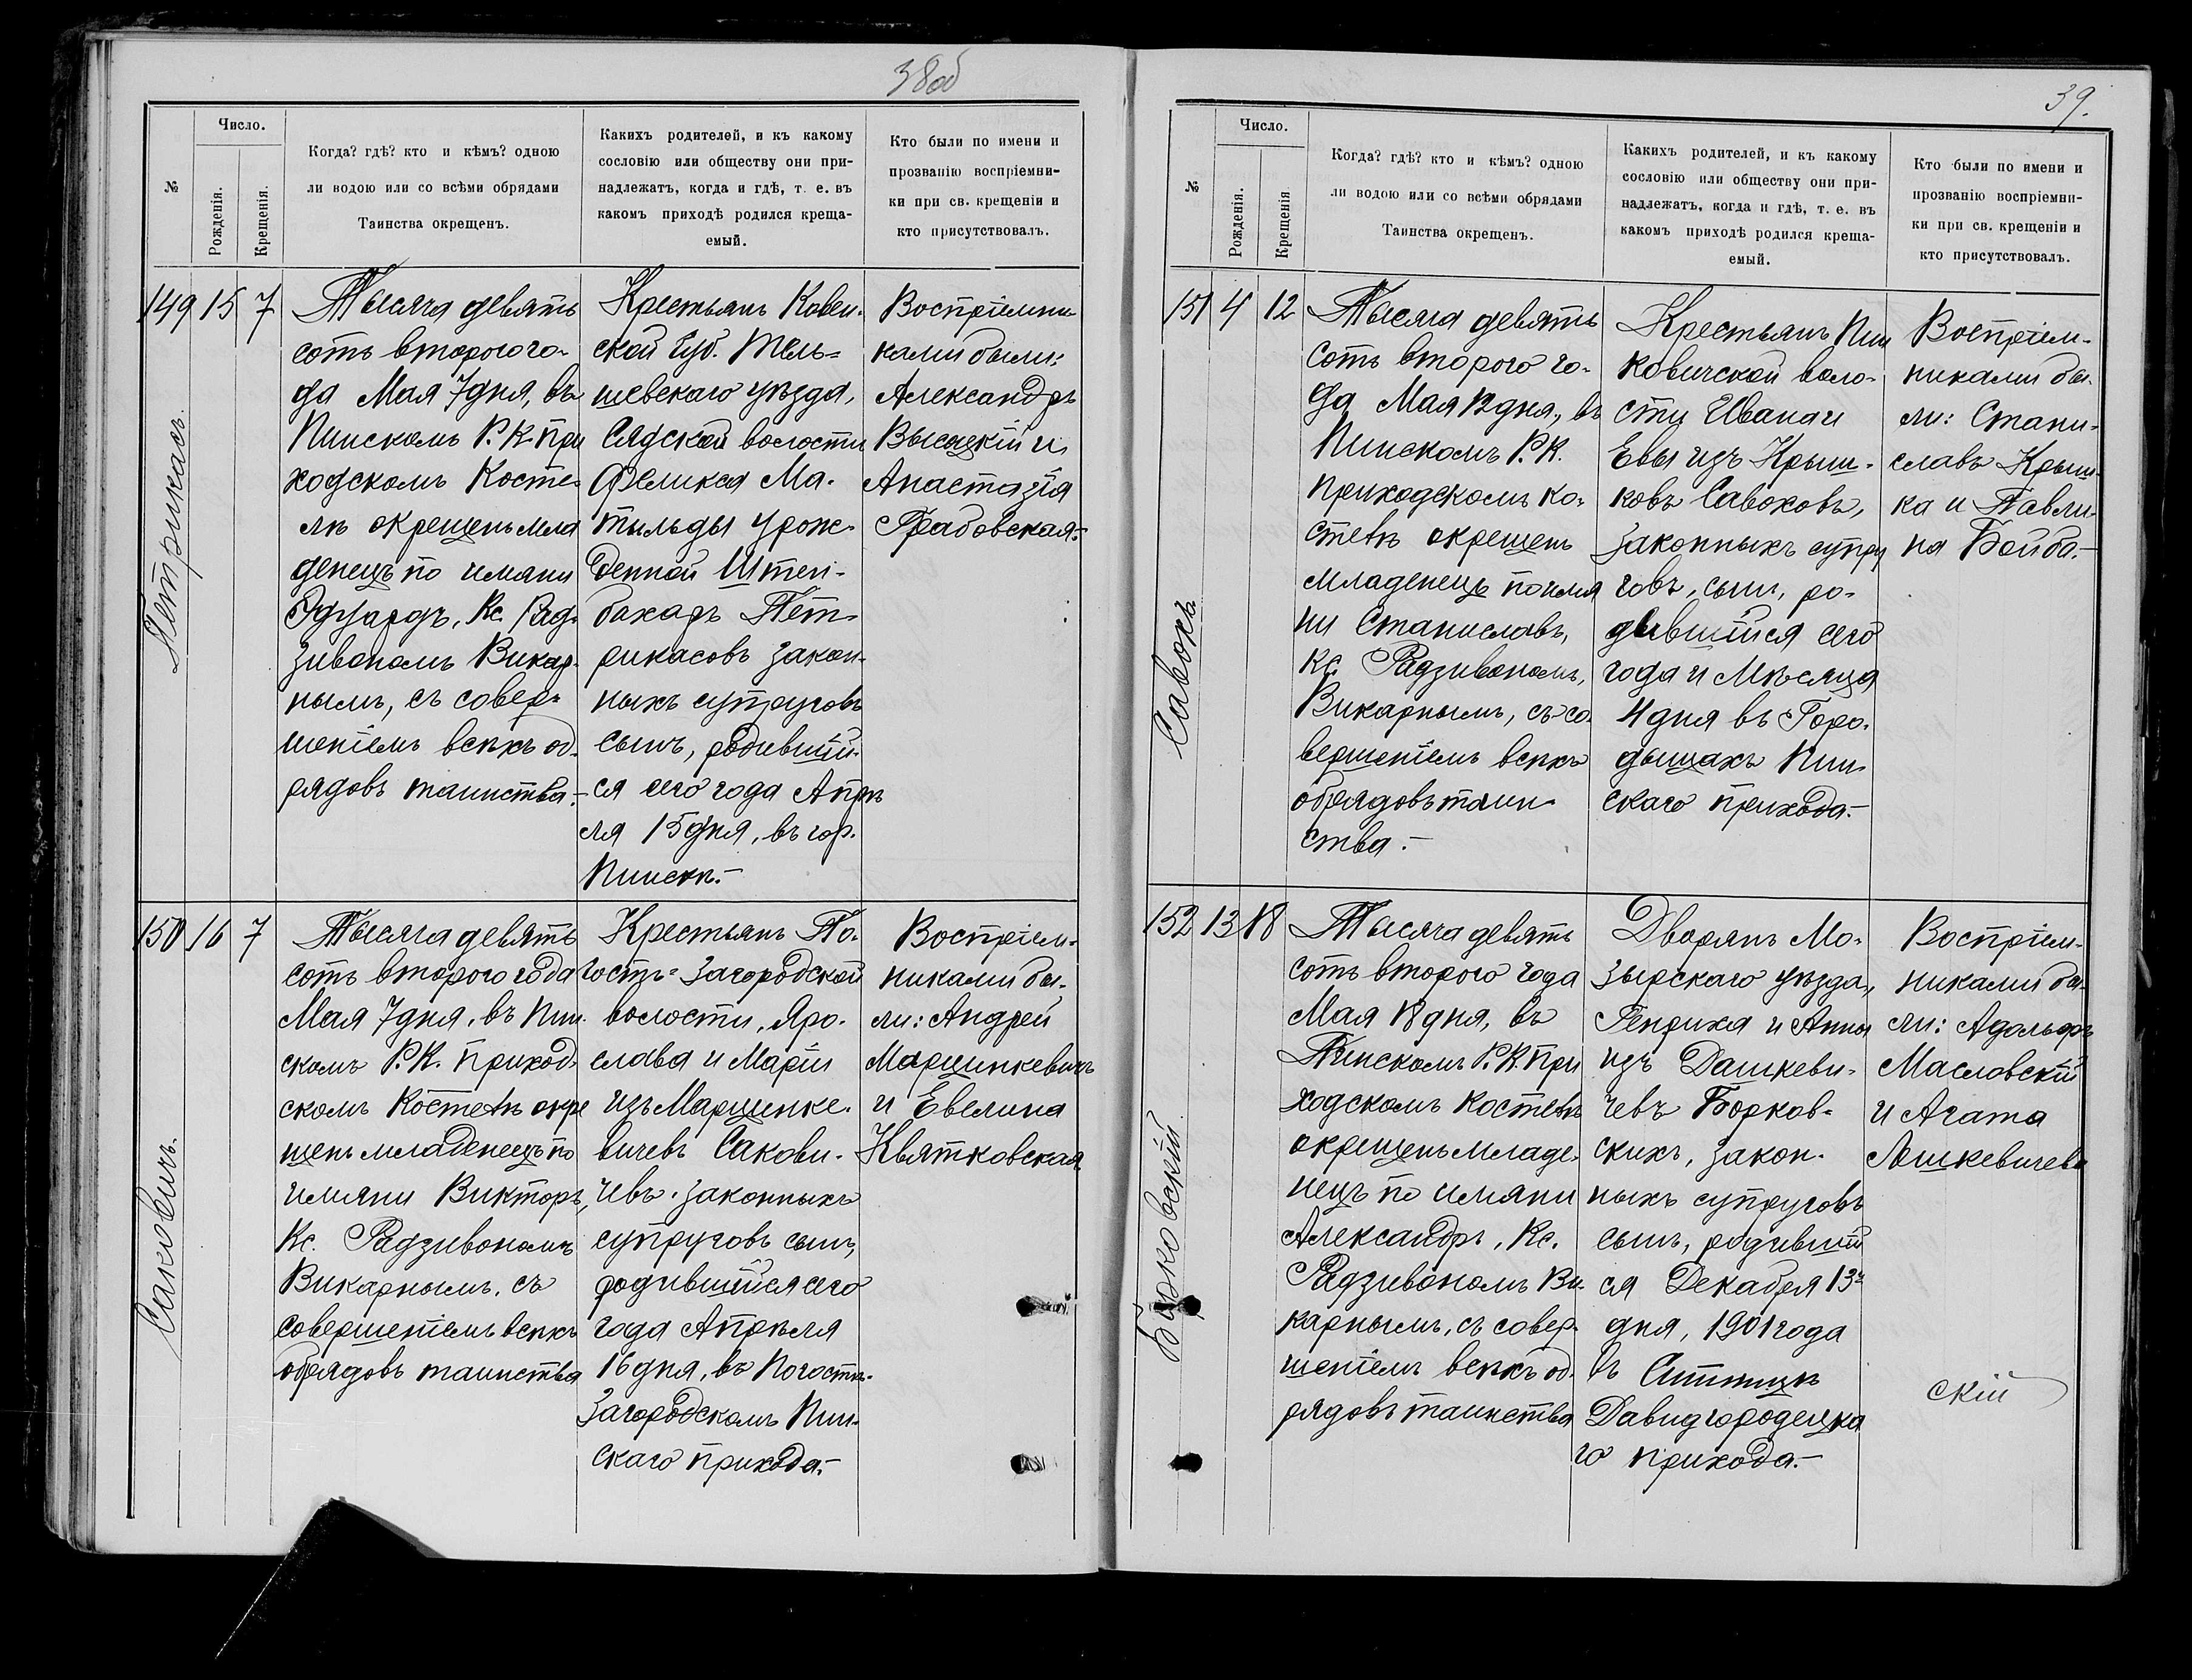 38об
№
Число.
Рожденія.
Крещенія.
Когда? гдѣ? кто и кѣмъ? одною
ли водою или со всѣми обрядами
Таинства окрещенъ.
Какихъ родителей, и къ какому
сословію или обществу они при-
надлежатъ, когда и гдѣ, т. е. въ
какомъ приходѣ родился креща-
емый.
Кто были по имени и
прозванію воспріемни-
ки при св. крещеніи и
кто присутствовалъ.
149 15 7
Петрикасъ.
Тысяча девять
сотъ второго го-
да Мая 7 дня, въ
Пинскомъ Р. К. при
ходскомъ Косте-
лѣ окрещенъ мла
денецъ по имяни
Эдуардъ, Кс. Рад-
зивономъ Викар-
нымъ, съ совер-
шеніемъ всѣхъ об-
рядовъ таинства.-
Крестьянъ Ковен-
ской Губ. Тель-
шевскаго уѣзда,
Сядской волости
Феликса Ма-
тыльды урож-
денной Штен-
бахаръ Пет-
рикасовъ закон-
ныхъ супруговъ
сынъ, родившій-
ся сего года Апрѣ
ля 15 дня, въ гор.
Пинскѣ.-
Воспріемни-
ками были:
Александръ
Высоцкій и
Анастазія
Грабовская.-
150 16 7
Саковичъ.
Тысяча девять
сотъ второго года
Мая 7 дня, въ Пин-
скомъ Р. К. приход-
скомъ Костелѣ окре
щенъ младенецъ по
имяни Викторъ,
Кс. Радзивономъ
Викарнымъ, съ
совершеніемъ всѣхъ
обрядовъ таинства
Крестьянъ По-
гостъ-Загородской
волости, Яро-
слава и Маріи
изъ Марцинке-
вичевъ Сакови-
чевъ законныхъ
супруговъ сынъ,
родившійся сего
года Апрѣля
16 дня, въ Погостѣ-
Загородскомъ Пин-
скаго прихода.-
Воспріем-
никами бы-
ли: Андрей
Марцинкевичъ
и Евелина
Квятковская
39.
№
Число.
Рожденія.
Крещенія
Когда? гдѣ? кто и кѣмъ? одною
ли водою или со всѣми обрядами
Таинства окрещенъ.
Какихъ родителей, и къ какому
сословію или обществу они при-
надлежатъ, когда и гдѣ, т. е. въ
какомъ приходѣ родился креща-
емый.
Кто были по имени и
прозванію воспріемни-
ки при св. крещеніи и
кто присутствовалъ.
151 4 12
Савокъ
Тысяча девять
сотъ второго го-
да Мая 12 дня, въ
Пинскомъ Р. К.
приходскомъ ко-
стелѣ окрещенъ
младенецъ по имя
ни Станиславъ,
Кс. Радзивономъ,
Викарнымъ, съ со-
вершеніемъ всѣхъ
обрядовъ таин-
ства.-
Крестьянъ Пин
ковичской воло-
сти Ивана и
Евы изъ Крыш-
ковъ Савоковъ,
законныхъ супру
говъ, сынъ, ро-
дившійся сего
года и Мѣсяца
4 дня въ Горо-
дыщахъ Пин-
скаго прихода.-
Воспріем-
никами бы-
ли: Стани-
славъ Крыш-
ка и Павли-
на Бойба.-
152 13 18
Борковскій
Тысяча девять
сотъ второго года
Мая 18 дня, въ
Пинскомъ Р. К. при
ходскомъ костелѣ
окрещенъ младе-
нецъ по имяни
Александръ, Кс.
Радзивономъ Ви-
карнымъ, съ совер-
шеніемъ всѣхъ об-
рядовъ таинства
Дворянъ Мо-
зырскаго уѣзда,
Генриха и Анны
изъ Дашкеви-
чевъ Борков-
скихъ, закон-
ныхъ супруговъ
сынъ, родившій
ся Декабря 13
дня, 1901 года
въ
Давидгородецка
го прихода.-
Воспріем-
никами бы-
ли: Адольфъ
Масловскій
и Агата
скій